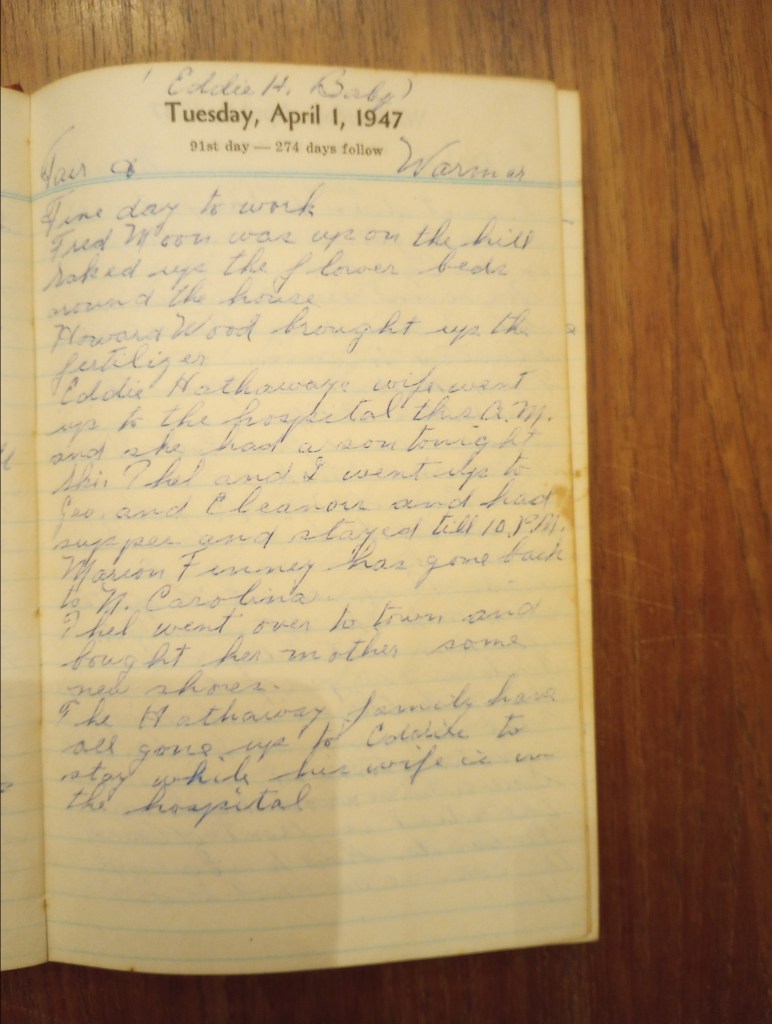 (Eddie H. Baby)
Tuesday, April 1, 1947
91st day — 274 days follow
Fair & Warmer
Fine day to work
Fred Moon was up on the hill
raked up the flower beds
around the house
Howard Wood brought up the
fertilizer
Eddie Hathaways wife went
up to the hospital this A.M.
and she had a son tonight
Thel and I went up to
Geo. and Eleanors and had
supper and stayed till 10 P.M.
Marion Finney has gone back
to N. Carolina
Thel went over to town and
bought her mother some
new shoes.
The Hathaway family have
all gone up to Eddie to
stay while his wife is in
the hospital